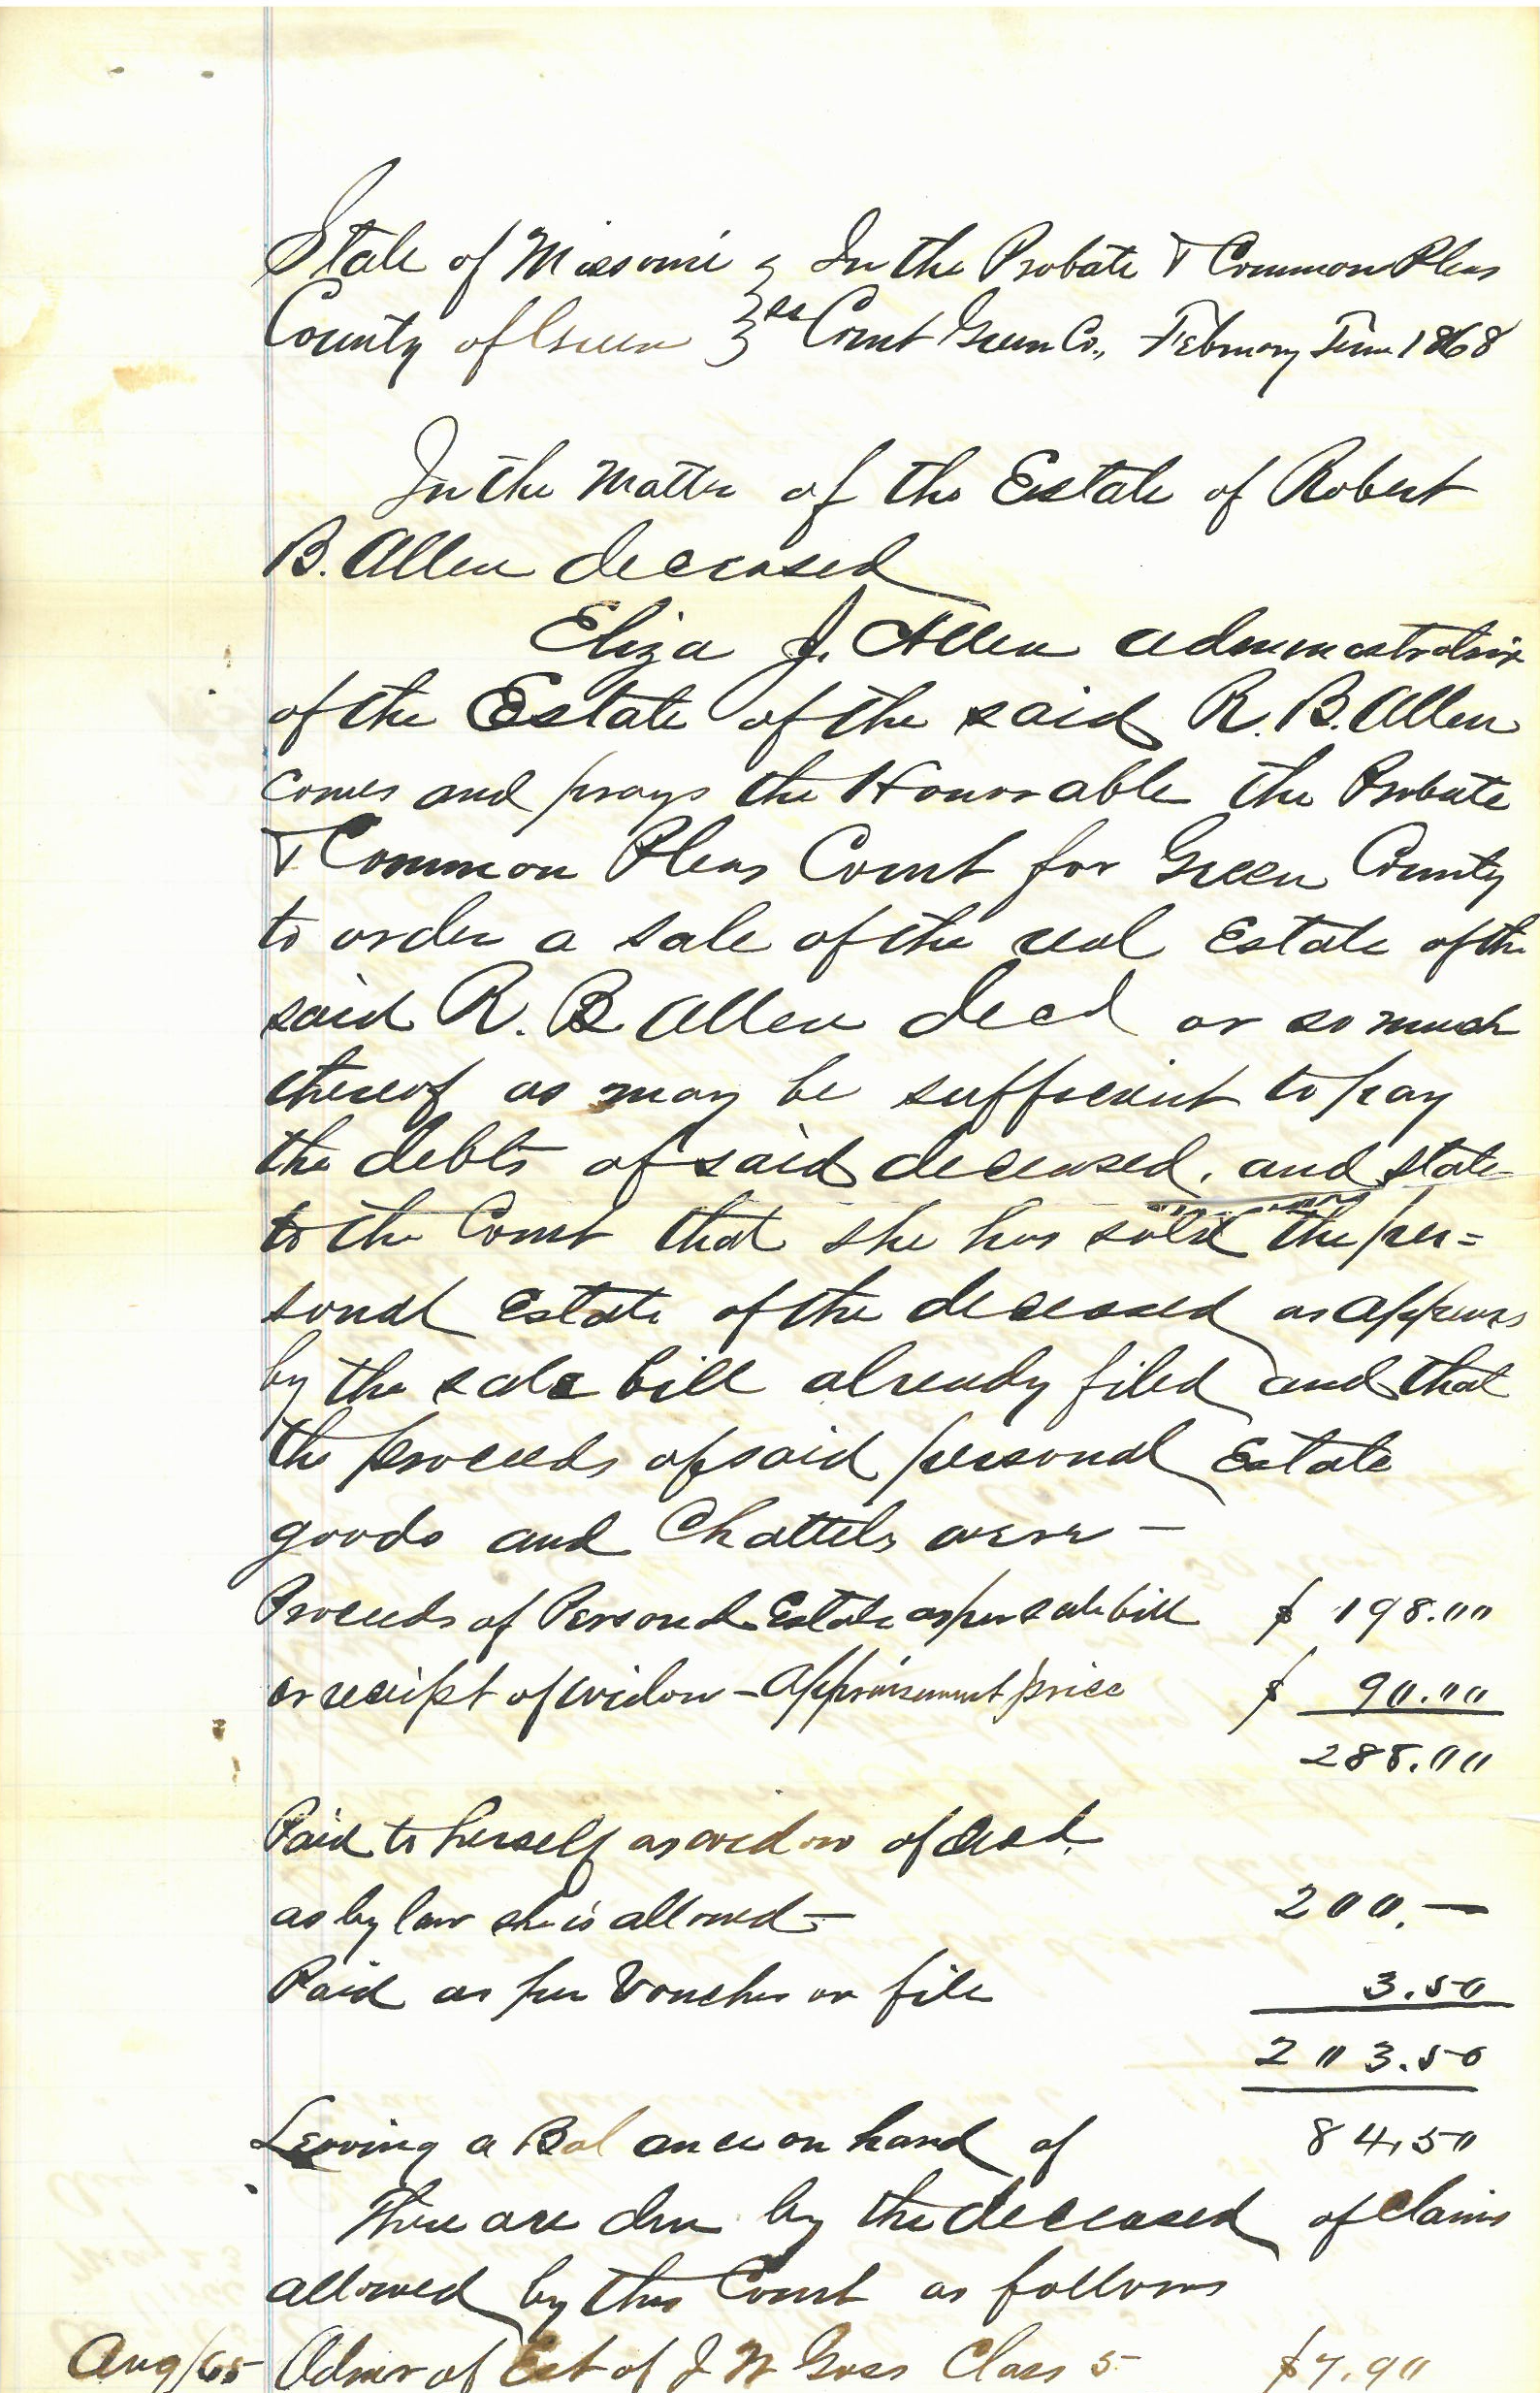 State of Missouri } In the Probate & Common Pleas
County of Green } ss Court Green Co., February Term 1868
In the Matter of the Estate of Robert
B. Allen deceased
Eliza J. Allen administratrix
of the Estate of the said R. B. Allen
comes and prays the Honorable the Probate
& Common Pleas Court for Green County
to order a sale of the real Estate of the
said R. B Allen decd or so much
thereof as may be sufficient to pay
the debts of said deceased, and state
to the Court that she has sold the per=
sonal Estate of the deceased as appears
by the sale bill already filed and that
the proceeds of said personal Estate
goods and Chattels were –
Proceeds of Personal Estate as per sale bill $ 198.00
or receipt of widow – appraisement price $ 90.00
288.00
Paid to herself as widow of decd.
as by law she is allowed – 200.–
Paid as per Voucher on file 3.50
203.50
Leaving a Balance on hand of 84,50
There are due by the deceased of claims
allowed by this Court as follows
Aug/65 Admr of Est of J W Goss Class 5 $7.90